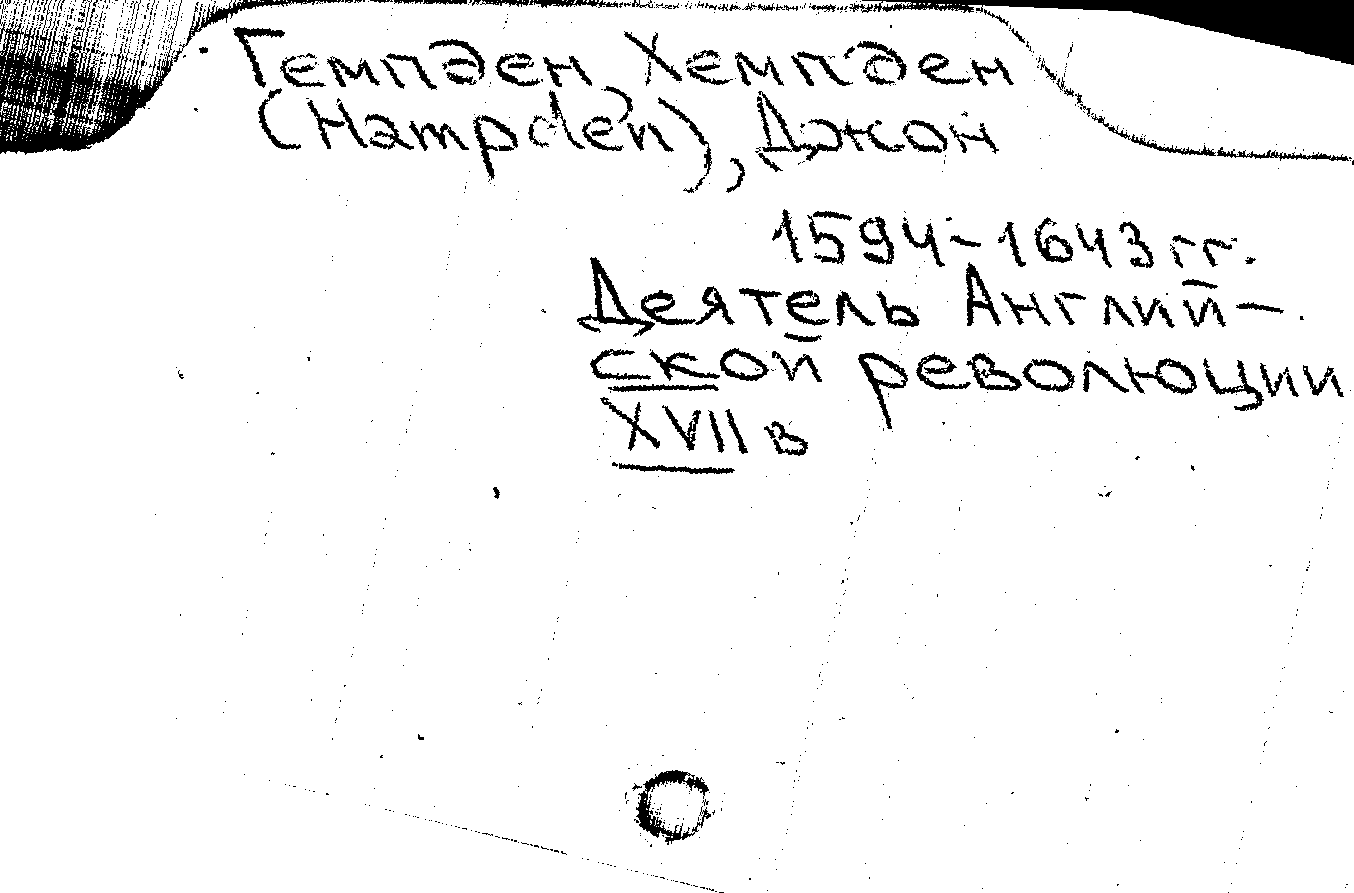 Гемпден, Хемпден
(Hampden), Джон
1594-1643 гг.
Деятель Англий-
ской революции
XVII в